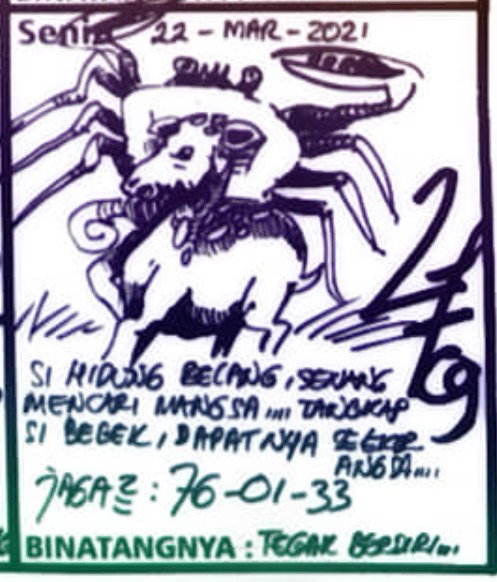 Senin 22 - MAR - 2021
SI HIDUNG BELANG, SENANG
MENCARI MANGSA .... TANGKAP
SI BEBEK, DAPATNYA SEEKOR
ANGSA....
JAGA2 : 76-01-33
BINATANGNYA : TEGAK BERDIRI....